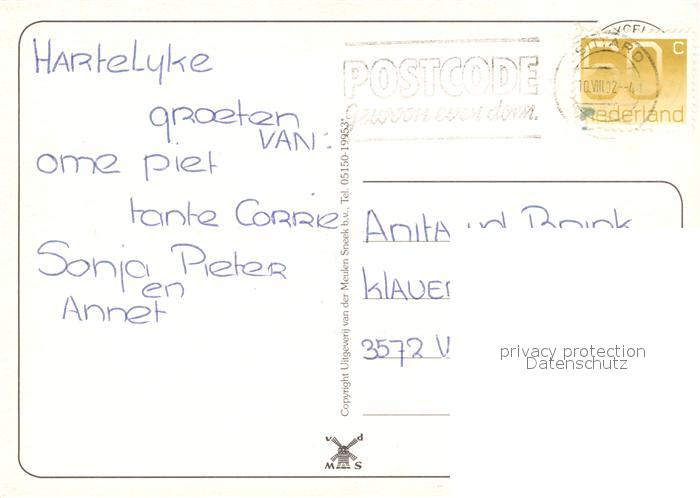 Hartelyke
groeten
VAN:
ome piet
tante Corrie
Sonja Pieter
en
Annet
POSTCODE
gewoon even doen.
SITTARD
10.VIII.92
60 C
nederland
Copyright Uitgeverij van der Meulen Sneek b.v., Tel. 05150-19953
Anita vd Brink
Klaver
3572 V
privacy protection
Datenschutz
v d
M S